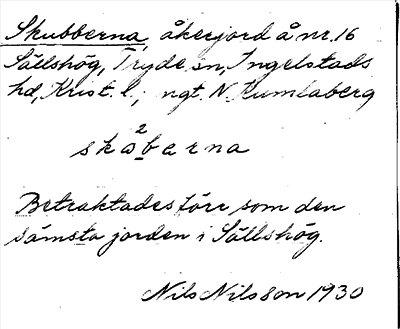 Skubberna, åkerjord å nr. 16
Sällshög, Tryde sn, Ingelstads
hd, Krist. l., ngt. N. Kumlaberg
2
skabarna
Betraktades förr som den
sämsta jorden i Sällshög.
Nils Nilsson 1930